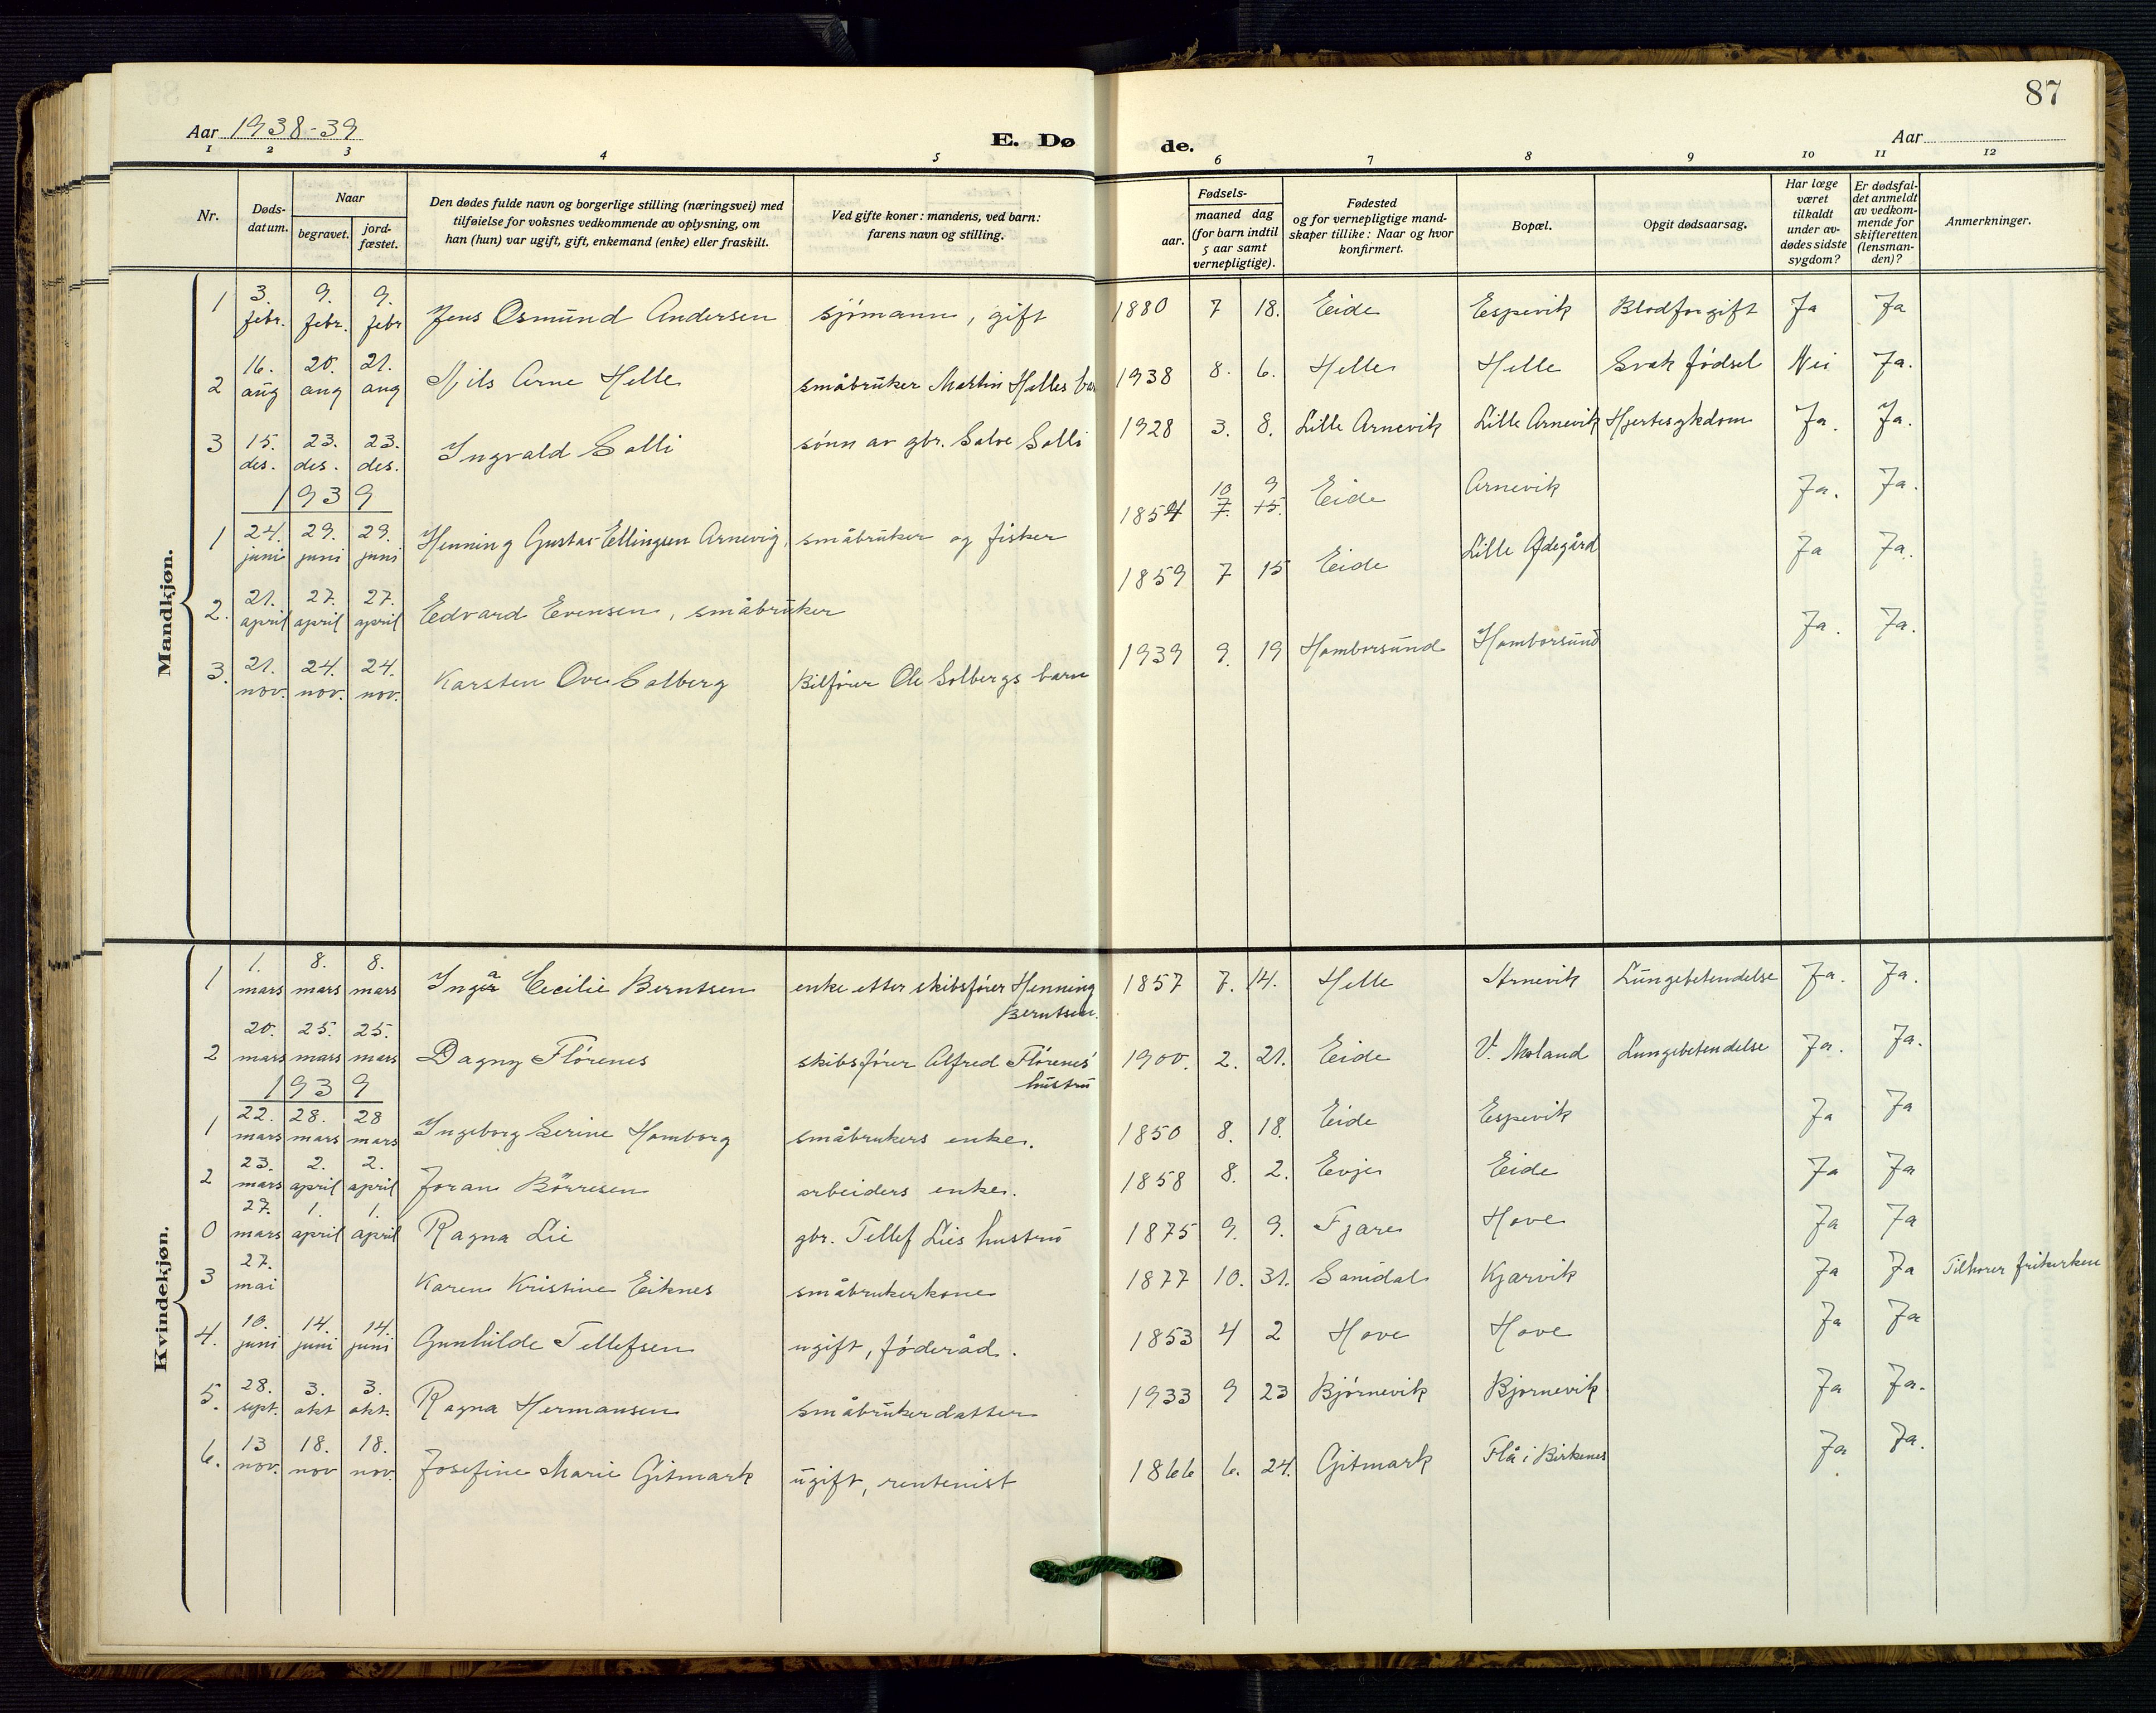 87
Aar 1938-39
E. Dø de.
Aar
1 2 3 4 5 6 7 8 9 10 11 12
Nr.
Døds-
datum.
Naar
begravet.
jord-
fæstet.
Den dødes fulde navn og borgerlige stilling (næringsvei) med
tilføielse for voksnes vedkommende av oplysning, om
han (hun) var ugift, gift, enkemand (enke) eller fraskilt.
Ved gifte koner: mandens, ved barn:
farens navn og stilling.
Fødsels-
aar.
maaned dag
(for barn indtil
5 aar samt
vernepligtige).
Fødested
og for vernepligtige mand-
skaper tillike: Naar og hvor
konfirmert.
Bopæl.
Opgit dødsaarsag.
Har læge
været
tilkaldt
under av-
dødes sidste
sygdom?
Er dødsfal-
det anmeldt
av vedkom-
mende for
skifteretten
(lensman-
den)?
Anmerkninger.
Mandkjøn.
1 3. febr. 9. febr. 9. febr Jens Osmund Andersen sjömann, gift 1880 7 18. Eide Espevik Blodforgift Ja Ja
2 16. aug 20. aug 21. aug Njils Arne Helle småbruker Martin Helles barn 1938 8. 6. Helle Helle Svak fødsel Nei Ja.
3 15. des. 23. des. 23. des. Ingvald Solli sönn av gbr. Salve Solli 1928 3. 8. Lille Arnevik Lille Arnevik Hjertesykdom Ja. Ja.
1939
1 24. juni 29. juni 29. juni Henning Gustav Ellingsen Arnevig, småbruker og fisker 1854 10 9 7. 15. Eide Arnevik Ja. Ja.
2. 21. april 27. april 27. april Edvard Evensen, småbruker 1859 7 15 Eide Lille Ødegård Ja Ja.
3. 21. nov. 24. nov. 24. nov. Karsten Ove Solberg Bilförer Ole Solbergs barn 1939 9. 19 Homborsund Homborsund Ja. Ja.
Kvindekjøn.
1 1. mars 8. mars 8. mars Inga Cecilie Berntsen enke etter skibsfører Henning Berntsen. 1857 7. 14. Helle Arnevik Lungebetendelse Ja. Ja.
2 20. mars 25. mars 25. mars Dagny Flörenes skibsförer Alfred Flörenes' hustru 1900. 2. 21. Eide V. Moland Lungebetendelse Ja. Ja.
1939
1 22. mars 28. mars 28 mars Ingeborg Serine Homborg småbrukers enke. 1850 8. 18. Eide Espevik Ja Ja
2 23. mars 2. april 2. april Joran Börresen arbeiders enke. 1858 8. 2. Evje Eide Ja Ja
0 27. mars 1. april 1. april Ragna Lie gbr. Tellef Lies hustru 1875 9. 9. Fjære Hove Ja Ja
3 27. mai Karen Kristine Eiknes småbrukerkone 1877 10. 31. Sanidal Kjørvik Ja Ja Tilhører frikirken
4. 10. juni 14. juni 14. juni Gunhilde Tellefsen ugift, föderåd. 1853 4 2 Hove Hove Ja Ja
5. 28. sept. 3. okt 3. okt. Ragna Hermansen småbrukerdatter 1933 9 23 Bjørnevik Bjørnevik Ja Ja.
6. 13 nov. 18. nov 18. nov. Josefine Marie Gitmark ugift, rentenist 1866 6. 24. Gitmark Flå i Birkenes Ja Ja.